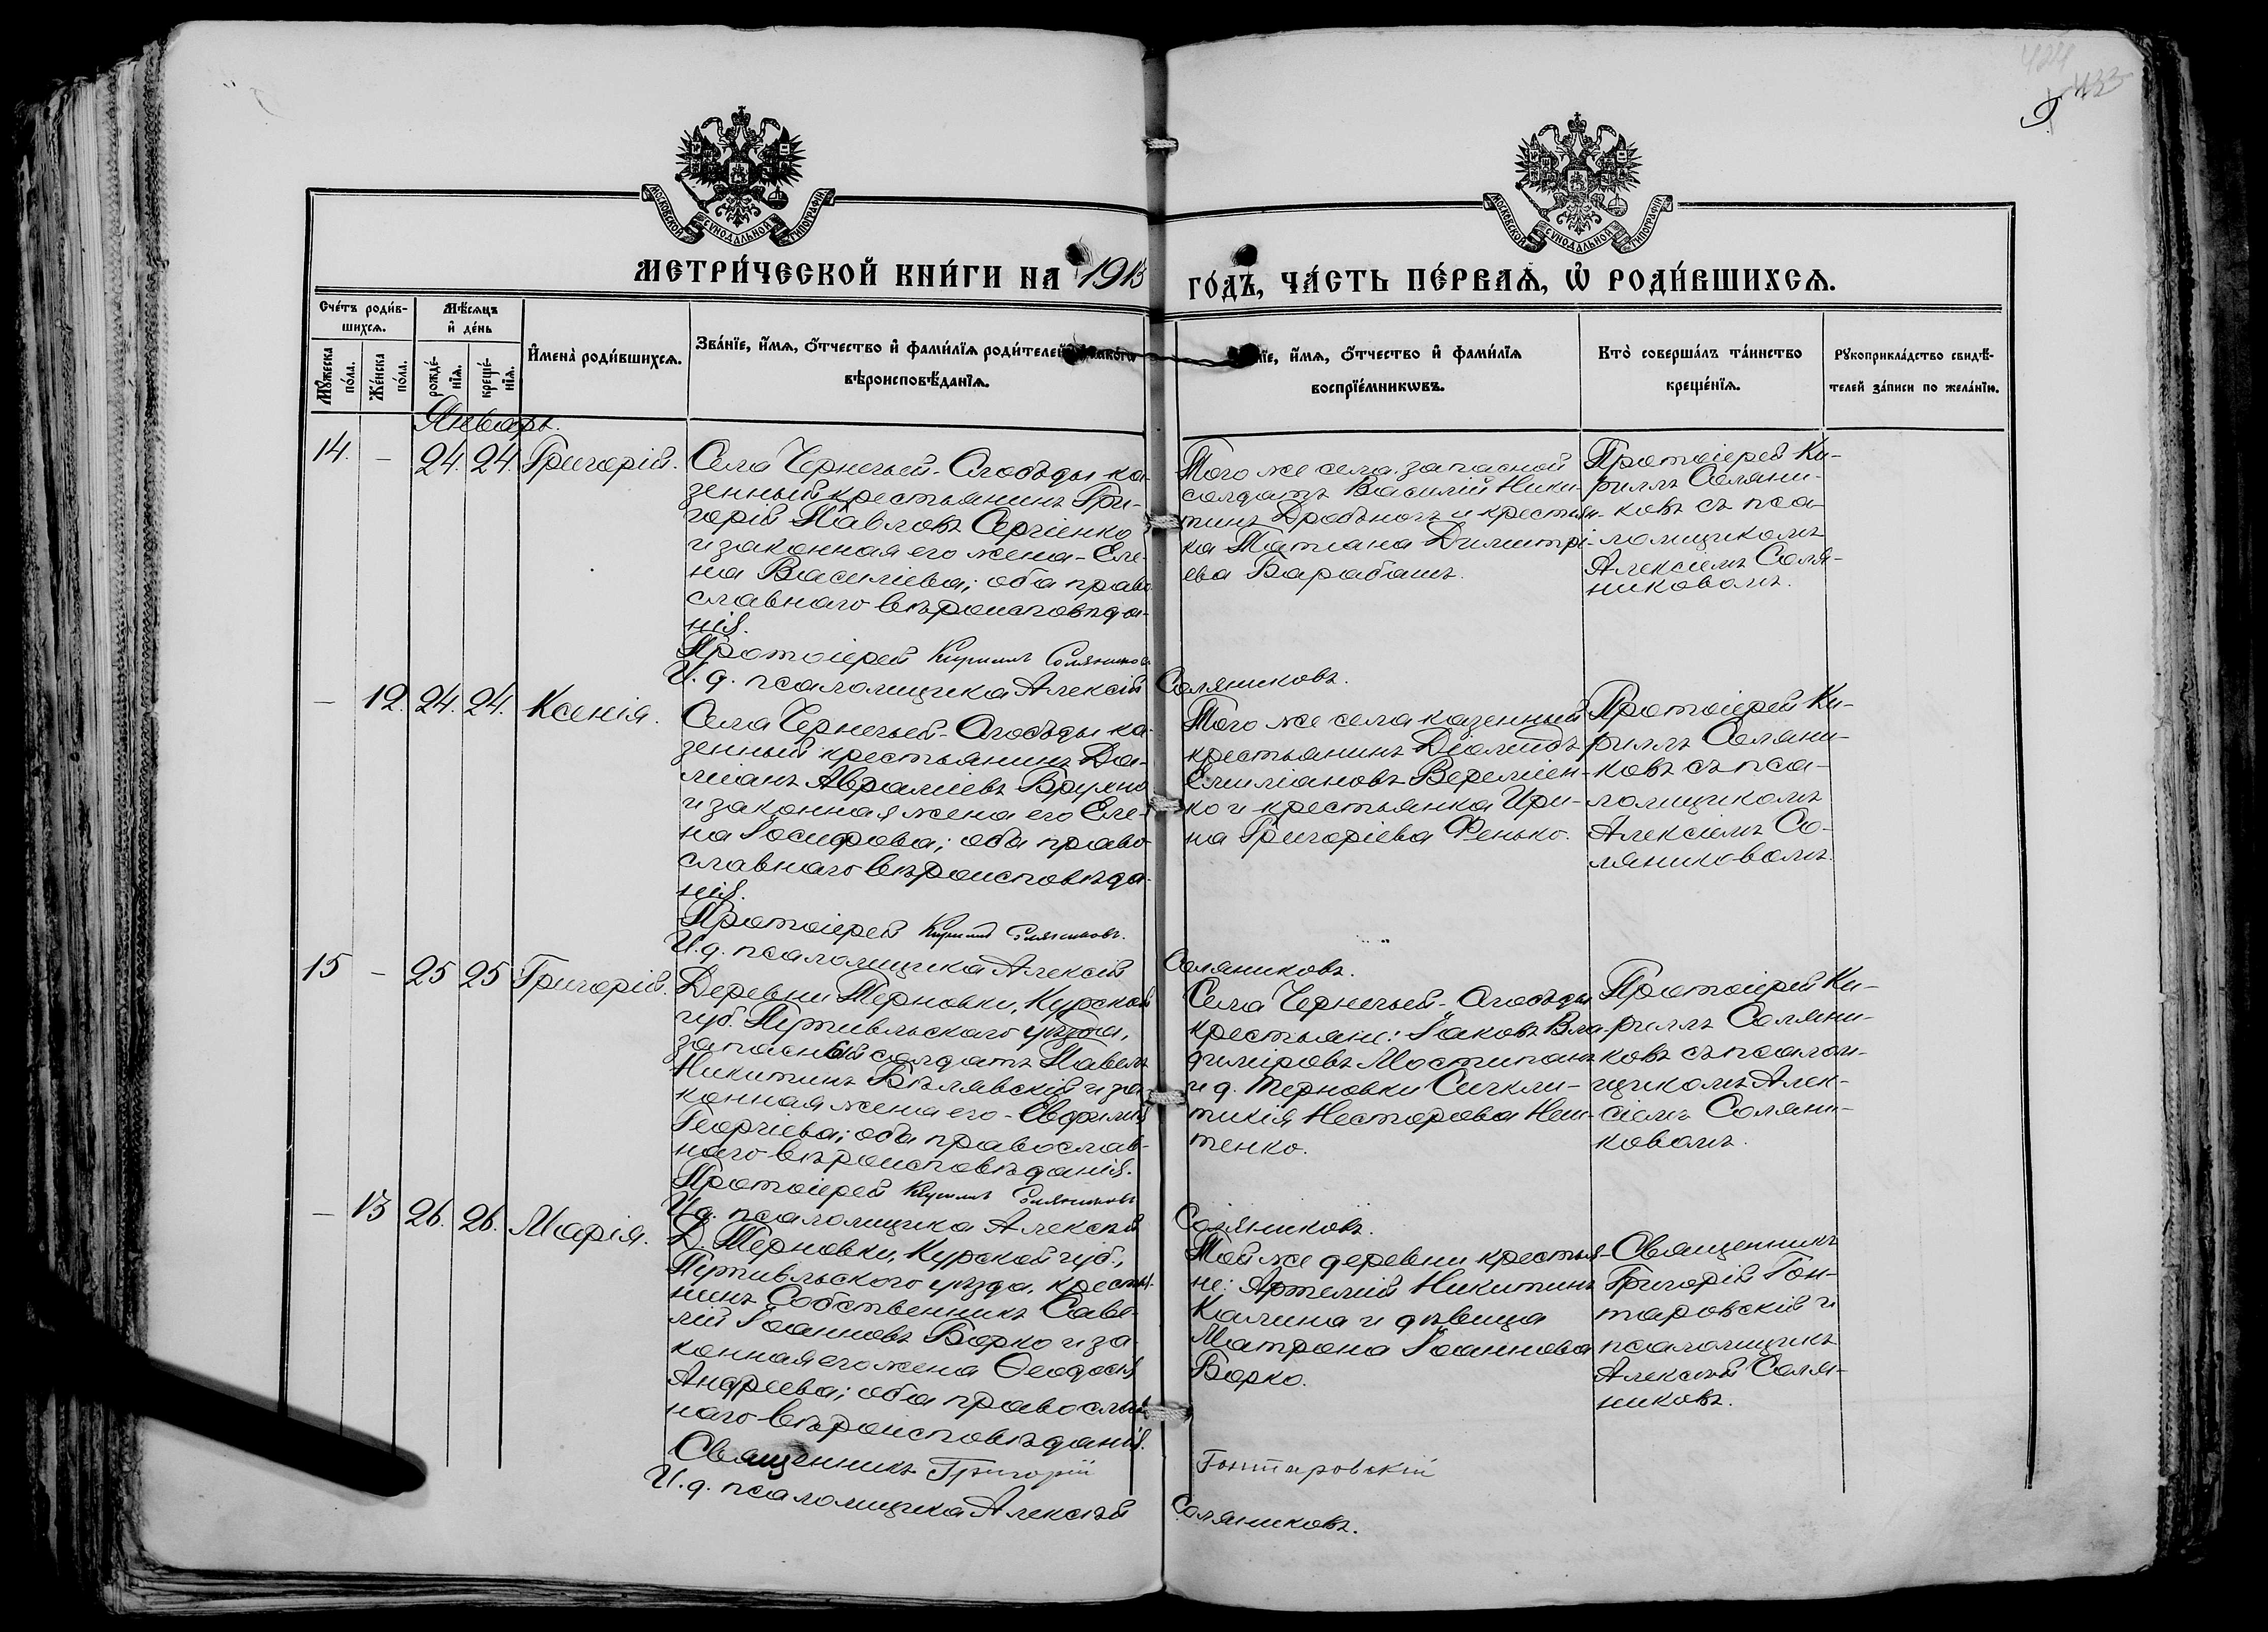 424
433
9
МОСКОВСКОЙ СѴНОДАЛЬНОЙ ТИПОГРАФІИ
МОСКОВСКОЙ СѴНОДАЛЬНОЙ ТИПОГРАФІИ
МЕТРИ́ЧЕСКОЙ КНИ́ГИ НА 1915 ГО́ДЪ, ЧА́СТЬ ПЕ́РВАѦ, Ѡ҆ РОДИ́ВШИХСѦ.
Сче́тъ роди́в-
шихсѧ.
Мѣ́сѧцъ
и҆ де́нь
Мꙋ́жеска
по́ла.
Же́нска
по́ла.
рожде́-
нїѧ.
креще́-
нїѧ.
И҆мена̀ роди́вшихсѧ.
Зва́нїе, и҆́мѧ, ѻ҆́тчество и҆ фами́лїѧ роди́телей
вѣроисповѣ́данїѧ.
и҆́мѧ, ѻ҆́тчество и҆ фами́лїѧ
воспрїе́мникѡвъ.
Кто̀ соверша́лъ та́инство
креще́нїѧ.
Рꙋкоприкла́дство свидѣ́-
телей за́писи по жела́нїю.
Январь.
14. – 24. 24. Григорій.
Села Чернечьей-Слободы ка-
зенный крестьянинъ Гри-
горій Павловъ Сергіенко
и законная его жена – Еле-
на Василіева; оба право-
славнаго вѣроисповѣда-
нія.
Протоіерей Кириллъ Соляниковъ
И. д. псаломщика Алексій Соляниковъ.
Того же села запасной
солдатъ Василій Ники-
тинъ Дробычъ и крестьян-
ка Татіана Димитрі-
ева Барабашъ.
Протоіерей Ки-
риллъ Соляни-
ковъ съ пса-
ломщикомъ
Алексіемъ Соля-
никовомъ.
– 12. 24. 24. Ксенія.
Села Чернечьей-Слободы ка-
зенный крестьянинъ Да-
міанъ Авраміевъ Брухно
и законная жена его Еле-
на Іосифова; оба право-
славнаго вѣроисповѣда-
нія.
Протоіерей Кириллъ Соляниковъ.
И. д. псаломщика Алексій Соляниковъ.
Того же села казенный
крестьянинъ Діомидъ
Емиліановъ Веремен-
ко и крестьянка Ири-
на Григоріева Фенько.
Протоіерей Ки-
риллъ Соляни-
ковъ съ пса-
ломщикомъ
Алексіемъ Со-
ляниковомъ.
15 – 25 25 Григорій.
Деревни Терновки, Курской
губ. Путивльскаго уѣзда,
запасный солдатъ Павелъ
Никитинъ Бѣлявскій и за-
конная жена его – Евфимія
Георгіева; оба православ-
наго вѣроисповѣданія.
Протоіерей Кириллъ Соляниковъ
И. д. псаломщика Алексѣй Соляниковъ.
Села Чернечьей-Слободы
крестьяне: Іаковъ Вла-
диміровъ Мостипанъ
и д. Терновки Сикли-
тикія Несторова Неш-
тенко.
Протоіерей Ки-
риллъ Соляни-
ковъ съ псалом-
щикомъ Алек-
сіемъ Соляни-
ковомъ.
– 13 26. 26. Марія.
Д. Терновки, Курской губ.,
Путивльского уѣзда, крестья-
нинъ Собственникъ Саве-
лій Іоанновъ Борко и за-
конная его жена Ѳеодосія
Андреева; оба православ-
наго вѣроисповѣданія.
Священникъ Григорій Гонтаровскій
И. д. псаломщика Алексѣй Соляниковъ.
Той же деревни крестья-
не: Артемій Никитинъ
Калина и дѣвица
Матрона Іоаннова
Борко.
Священникъ
Григорій Гон-
таровскій и
псаломщикъ
Алексѣй Соля-
никовъ.